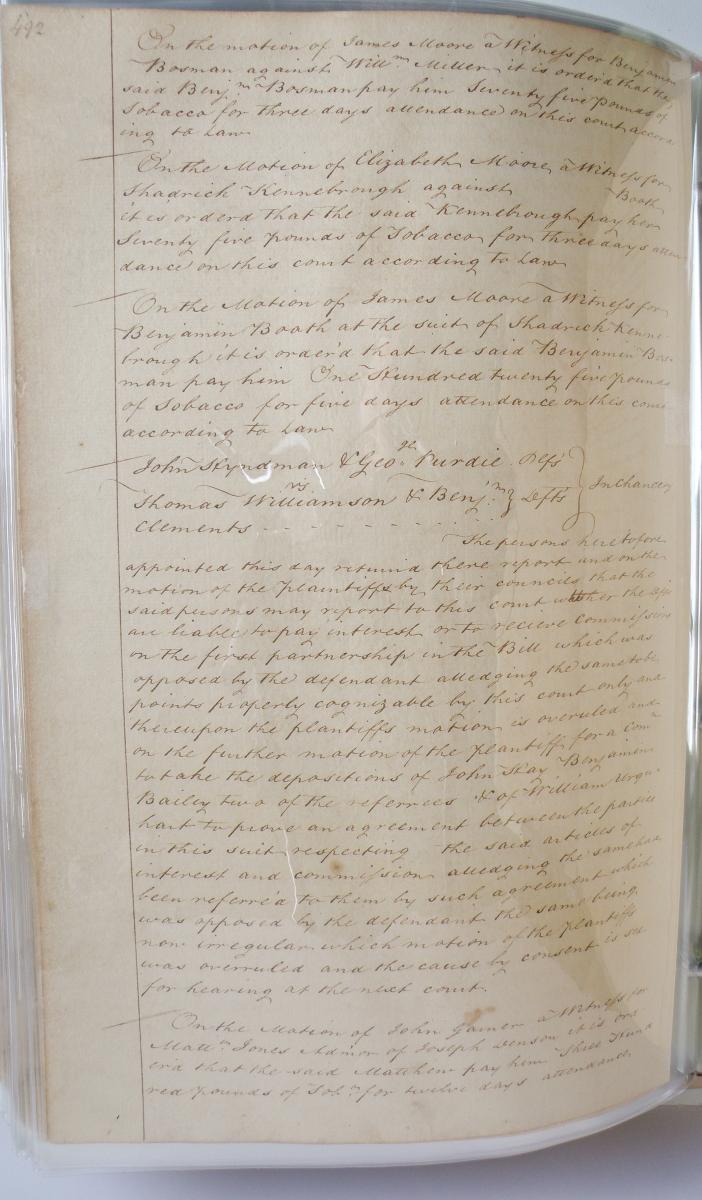 492
On the motion of James Moore a Witness for Benjamin
Bosman against Willm Miller it is order'd that the
said Benjmn Bosman pay him Seventy five pounds of
Tobacco for three days attendance on this court accord
ing to Law
On the Motion of Elizabeth Moore a Witness for
Shadrick Kennebrough against Booth
it is orderd that the said Kennebrough pay her
Seventy five pounds of Tobacco for three days atten
dance on this court according to Law
On the Motion of James Moore a Witness for
Benjamin Booth at the suit of Shadrick Kenne
brough it is order'd that the said Benjamin Bos
man pay him One Hundred twenty five pounds
of Tobacco for five days attendance on this court
according to Law
John Hyndman & Geoge Purdie
vs In Chancery
Thomas Williamson & Benjmn Defts
Clements
The persons heretofore
appointed this day returnd there report and on the
motion of the plaintiffs by their councils that the
said persons may report to this court whether the
are liable to pay interest or to recieve commissions
on the first partnership in the Bill which was
opposed by the defendant alledging the same to be
points properly cognizable by this court only and
thereupon the plaintiffs motion is overuled and
on the further motion of the plaintiff for a Comn
to take the depositions of John Hay Benjamin
Bailey two of the referrees & of William Urqu
hart to prove an agreement between the parties
in this suit respecting the said articles of
interest and commission alledging the same had
been referre'd to them by such agreement which
was opposed by the defendant the same being
now irregular which motion of the plaintiffs
was overruled and the cause by consent is set
for hearing at the next court.
On the Motion of John Gainer a Witness for
Mattw Jones Admor of Joseph Denson it is ord
er'd that the said Matthew pay him Three Hund
red pounds of Tobo for twelve days attendance